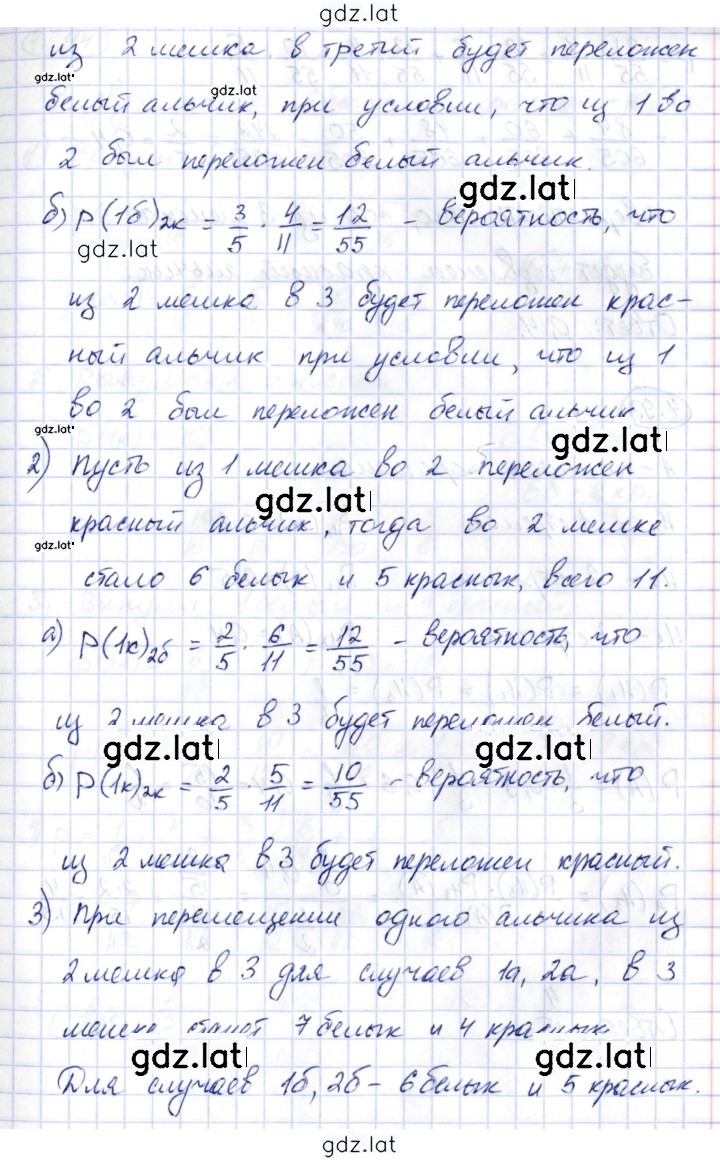 gdz.lat
из 2 мешка в третий будет переложен
gdz.lat
gdz.lat
белый альчик, при условии, что из 1 во
2 был переложен белый альчик.
gdz.lat
gdz.lat
б) P(1б)₂к = 3/5 · 4/11 = 12/55 – вероятность, что
gdz.lat
из 2 мешка в 3 будет переложен крас-
ный альчик при условии, что из 1
во 2 был переложен белый альчик.
gdz.lat
gdz.lat
2) Пусть из 1 мешка во 2 переложен
gdz.lat
красный альчик, тогда во 2 мешке
gdz.lat
стало 6 белых и 5 красных, всего 11.
а) P(1к)₂б = 2/5 · 6/11 = 12/55 – вероятность, что
из 2 мешка в 3 будет переложен белый.
gdz.lat
gdz.lat
б) P(1к)₂к = 2/5 · 5/11 = 10/55 – вероятность, что
из 2 мешка в 3 будет переложен красный.
gdz.lat
3) При перемещении одного альчика из
2 мешка в 3 для случаев 1а, 2а, в 3
мешке станет 7 белых и 4 красных.
gdz.lat
gdz.lat
Для случаев 1б, 2б – 6 белых и 5 красных.
gdz.lat